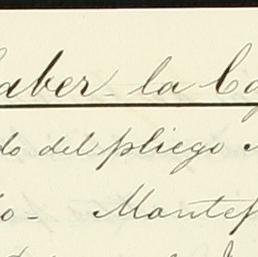 aber la Ca
do del pliego
o- Montef